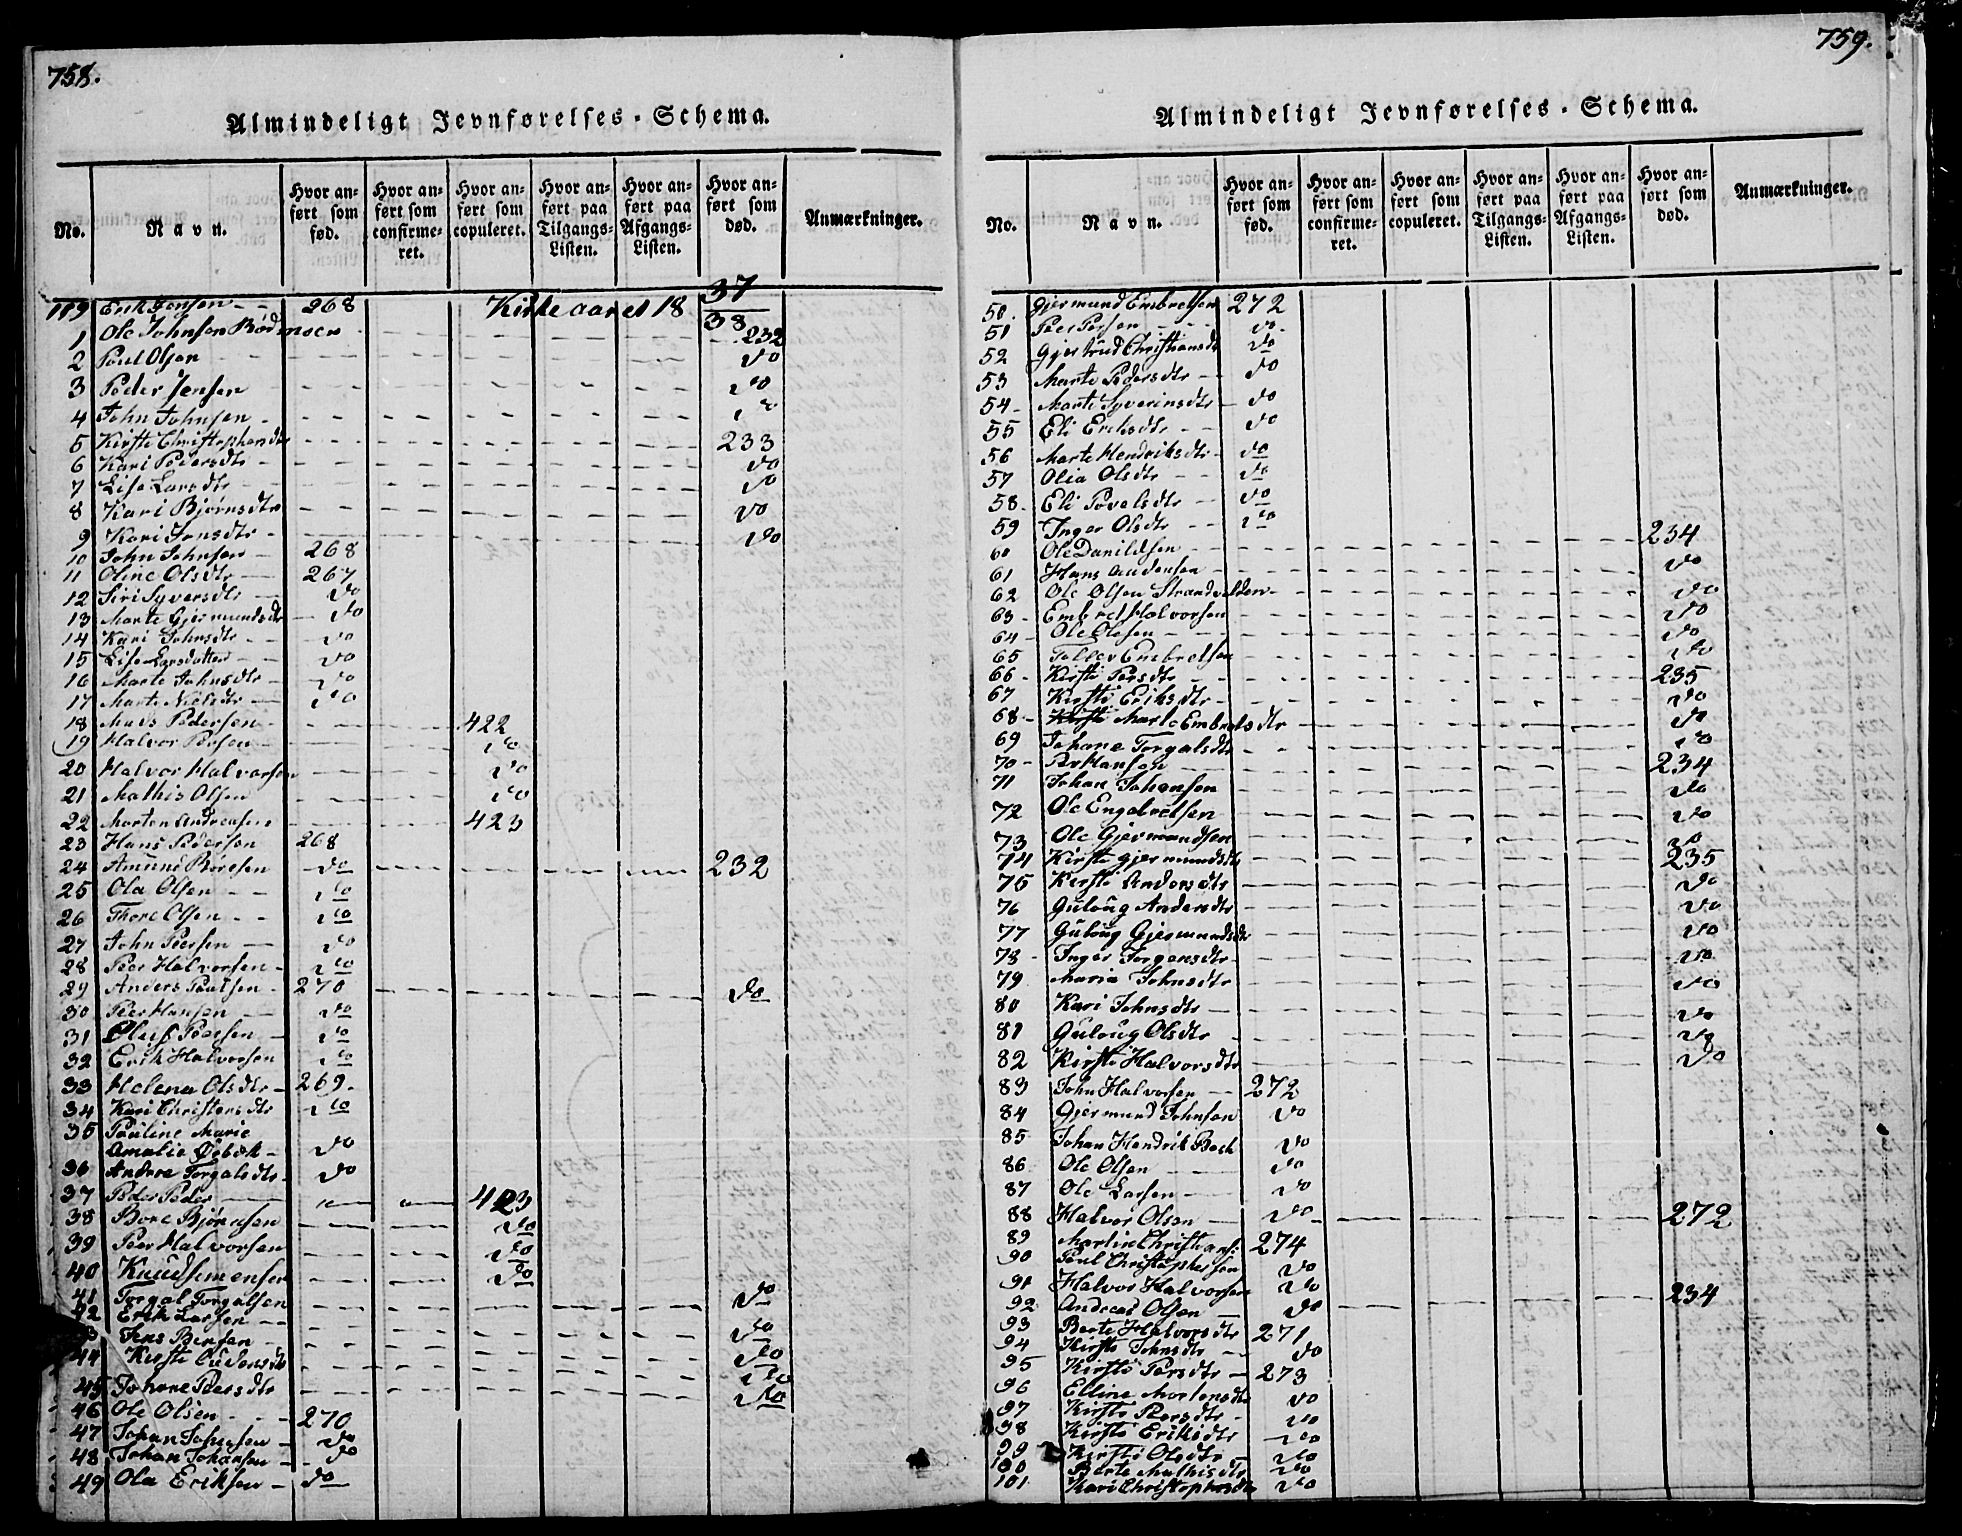 758.
Almindeligt Jevnførelses-Schema.
No.
Navn.
Hvor anført som fød.
Hvor anført som confirmeret.
Hvor anført som copuleret.
Hvor anført paa Tilgangs-Listen.
Hvor anført paa Afgangs-Listen.
Hvor anført som død.
Anmærkninger.
119 Erik Jensen 268
Kirkeaaret 18 37/38
1 Ole Johnsen Bødmoen 232
2 Poul Olsen do
3 Peder Jensen do
4 John Johnsen do
5 Kirsti Christophersdtr 233
6 Kari Pedersdtr do
7 Lise Larsdtr do
8 Kari Bjørnsdtr do
9 Kari Jensdtr do
10 John Johnsen 268
11 Oline Olsdtr 267
12 Siri Syversdtr do
13 Marte Gjermundsdtr do
14 Kari Johnsdtr do
15 Lise Larsdatter do
16 Marte Johnsdtr do
17 Marte Nielsdtr do
18 Mads Pedersen 422
19 Halvor Persen do
20 Halvor Halvorsen do
21 Mathis Olsen do
22 Morten Andreasen 423
23 Hans Pedersen 268
24 Amund Børesen do 232
25 Ola Olsen do
26 Thore Olsen do
27 John Peersen do
28 Peer Halvorsen do
29 Anders Paulsen 270 do
30 Peer Hansen do
31 Oluf Peersen do
32 Erik Halvorsen do
33 Helena Olsdtr 269.
34 Kari Christensdtr do
35 Pauline Marie
Amalie do
36 Andrea Torgalsdtr do
37 Peder Peder 423
38 Bore Bjørnsen do
39 Peer Halvorsen do
40 Knud Simensen do
41 Torgal Torgalsen do
42 Erik Larsen do
43 Jens Bensen do
44 Kirsti Audensdtr do
45 Johane Peersdtr do
46 Ole Olsen 270
47 Johan Johnsen do
48 Johan Johansen do
49 Ola Eriksen do
759.
Almindeligt Jevnførelses-Schema.
No.
Navn.
Hvor anført som fød.
Hvor anført som confirmeret.
Hvor anført som copuleret.
Hvor anført paa Tilgangs-Listen.
Hvor anført paa Afgangs-Listen.
Hvor anført som død.
Anmærkninger.
50. Gjermund Embretsen 272
51 Peer Persen do
52 Gjertrud Christiansdt do
53 Marte Pedersdtr do
54 Marte Syverinsdtr do
55 Eli Eriksdtr do
56 Marte Hendriksdtr do
57 Olia Olsdtr do
58 Eli Povelsdtr do
59 Inger Olsdtr do
60 Ole Danildsen 234
61 Hans Audensen do
62 Ole Olsen Strandvolden do
63 Embret Halvorsen do
64 Ole Olesen do
65 Tollev Embretsen do
66 Kirsti Persdtr 235
67 Kirsti Eriksdtr do
68 Kirsti Marte Embretsdtr do
69 Johane Torgalsdtr do
70 Per Hansen 234
71 Johan Johansen do
72 Ole Engebretsen do
73 Ole Gjermundsen do
74 Kirsti Gjermundsdtr 235
75 Kirsti Andersdtr do
76 Guloug Andersdtr do
77 Guloug Gjermundsdtr do
78 Inger Jorgensdtr do
79 Maria Johnsdtr do
80 Kari Johnsdtr do
81 Guloug Olsdtr do
82 Kirsti Halvorsdtr do
83 John Halvorsen 272
84 Gjermund Johnsen do
85 Johan Hendrik Beck do
86 Ole Olsen do
87 Ole Larsen do
88 Halvor Olsen do 272
89 Martin Christians: 274
90 Paul Christophersen do
91 Halvor Halvorsen do
92 Andreas Olsen do 234
93 Berte Halvorsdtr 271
94 Kirsti Johnsdtr do
95 Kirsti Persdtr 273
96 Elline Mortensdtr do
97 Kirsti Peersdtr do
98 Kirsti Eriksdtr do
99 Kirsti Olsdtr do
100 Berte Mathisdtr do
101 Kari Christophersdtr do